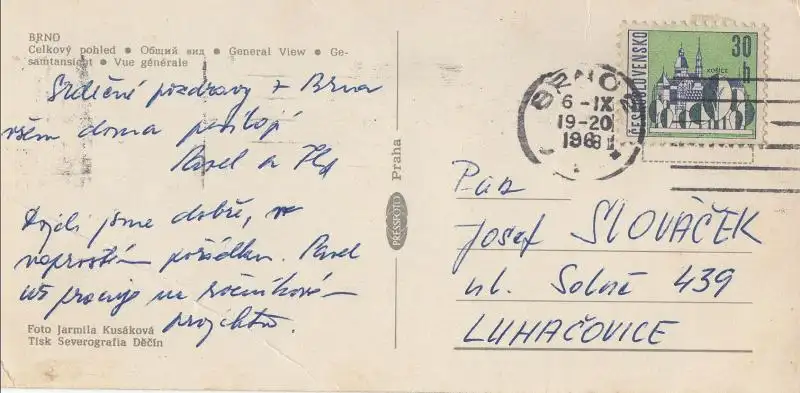 BRNO
Celkový pohled ● Общий вид ● General View ● Ge-
samtansicht ● Vue générale
Srdečné pozdravy z Brna
všem doma posílají
Pavel a
Dojeli jsme dobře, v
naprostém pořádku. Pavel
už pracuje na ročníkovém
projektu.
Foto Jarmila Kusáková
Tisk Severografia Děčín
Praha
PRESSFOTO
BRNO 2
6-IX
19-20
1968
ČESKOSLOVENSKO
30
h
KOŠICE
Pan
Josef SLOVÁČEK
ul. Solné 439
LUHAČOVICE